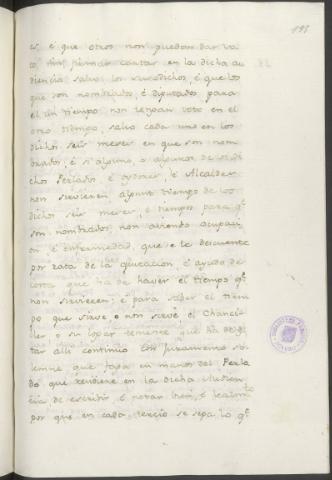 191
es, é que otros non puedan dar vo
to, nin firmar cartas en la dicha au
diencia salvo los susodichos, é que los
que son nombrados, é diputados para
el un tiempo non tengan voto en el
otro tiempo, salvo cada uno en los
dichos seis meses en que son nom
brados, é si alguno, o algunos de los di
chos Perlados é oydores, é Alcaldes
non sirvieren algunt tiempo de los
dichos seis meses, é tiempos para q.e
son nombrados, non aviendo ocupaci
on é enfermedad, que se le descuente
por rata de la quitacion é ayuda de
costa que ha de haver el tiempo q.e
non sirvieren; é para saber el tiem
po que sirve, o non sirve el Chanci
ller, o su logar teniente que ha de es
tar alli continuo con juramento so
lemne que faga en manos del Perla
do que residiere en la dicha Audien
cia de escribir, é notar bien, é lealm.te
por que en cada tercio se sepa lo q.e